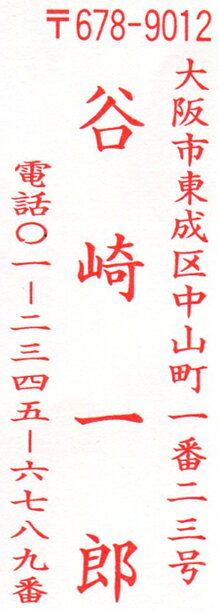 〒678-9012
大阪市東成区中山町一番二三号
谷崎一郎
電話〇一－二三四五－六七八九番